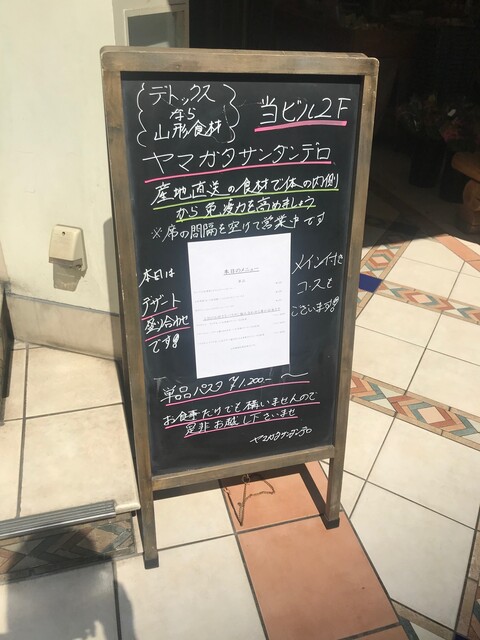 デトックス
なら
山形食材
当ビル2F
ヤマガタサンダンデロ
産地直送の食材で体の内側
から免疫力を高めましょう
※席の間隔を空けて営業中です
本日は
デザート
盛り合わせ
です!!
本日のメニュー
メイン付き
コースも
ございます!!
単品パスタ ¥1,200- 〜
お食事だけでも構いませんので
是非お越し下さいませ
ヤマガタサンダンデロ